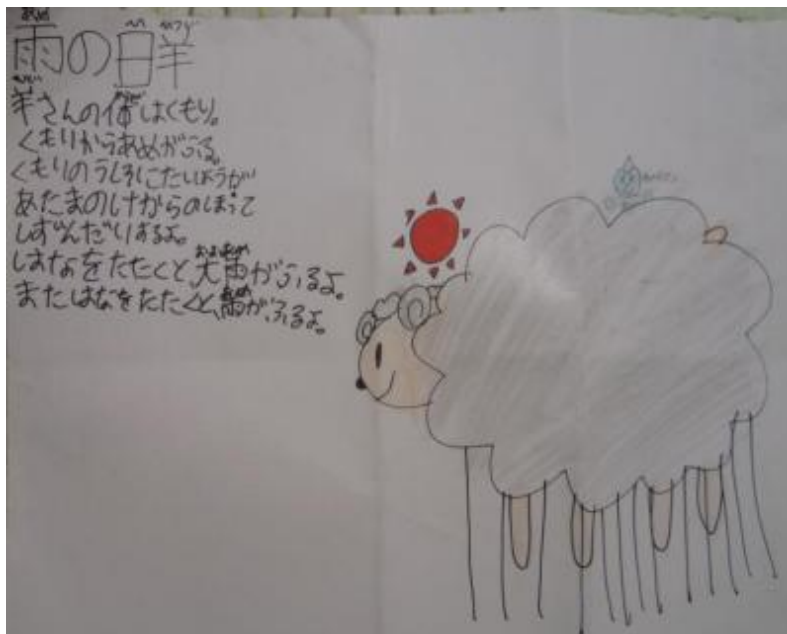 雨の日羊
羊さんの体はくもり。
くもりからあめがふる。
くもりのうしろにたいようが
あたまのけからのぼって
しずんだりするよ。
はなをたたくと、大雨がふるよ。
またはなをたたくと、雨がふるよ。